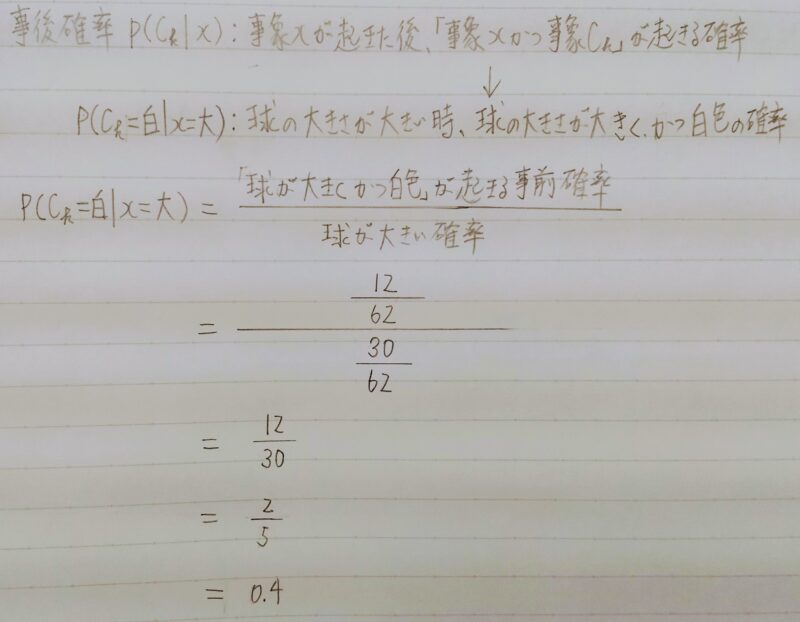 事後確率 P(Ck|x):事象xが起きた後、「事象xかつ事象Ck」が起きる確率
↓
P(Ck=白|x=大):球の大きさが大きい時、球の大きさが大きく、かつ白色の確率
P(Ck=白|x=大) = 「球が大きくかつ白色」が起きる事前確率
球が大きい確率
= 12
62
30
62
= 12
30
= 2
5
= 0.4